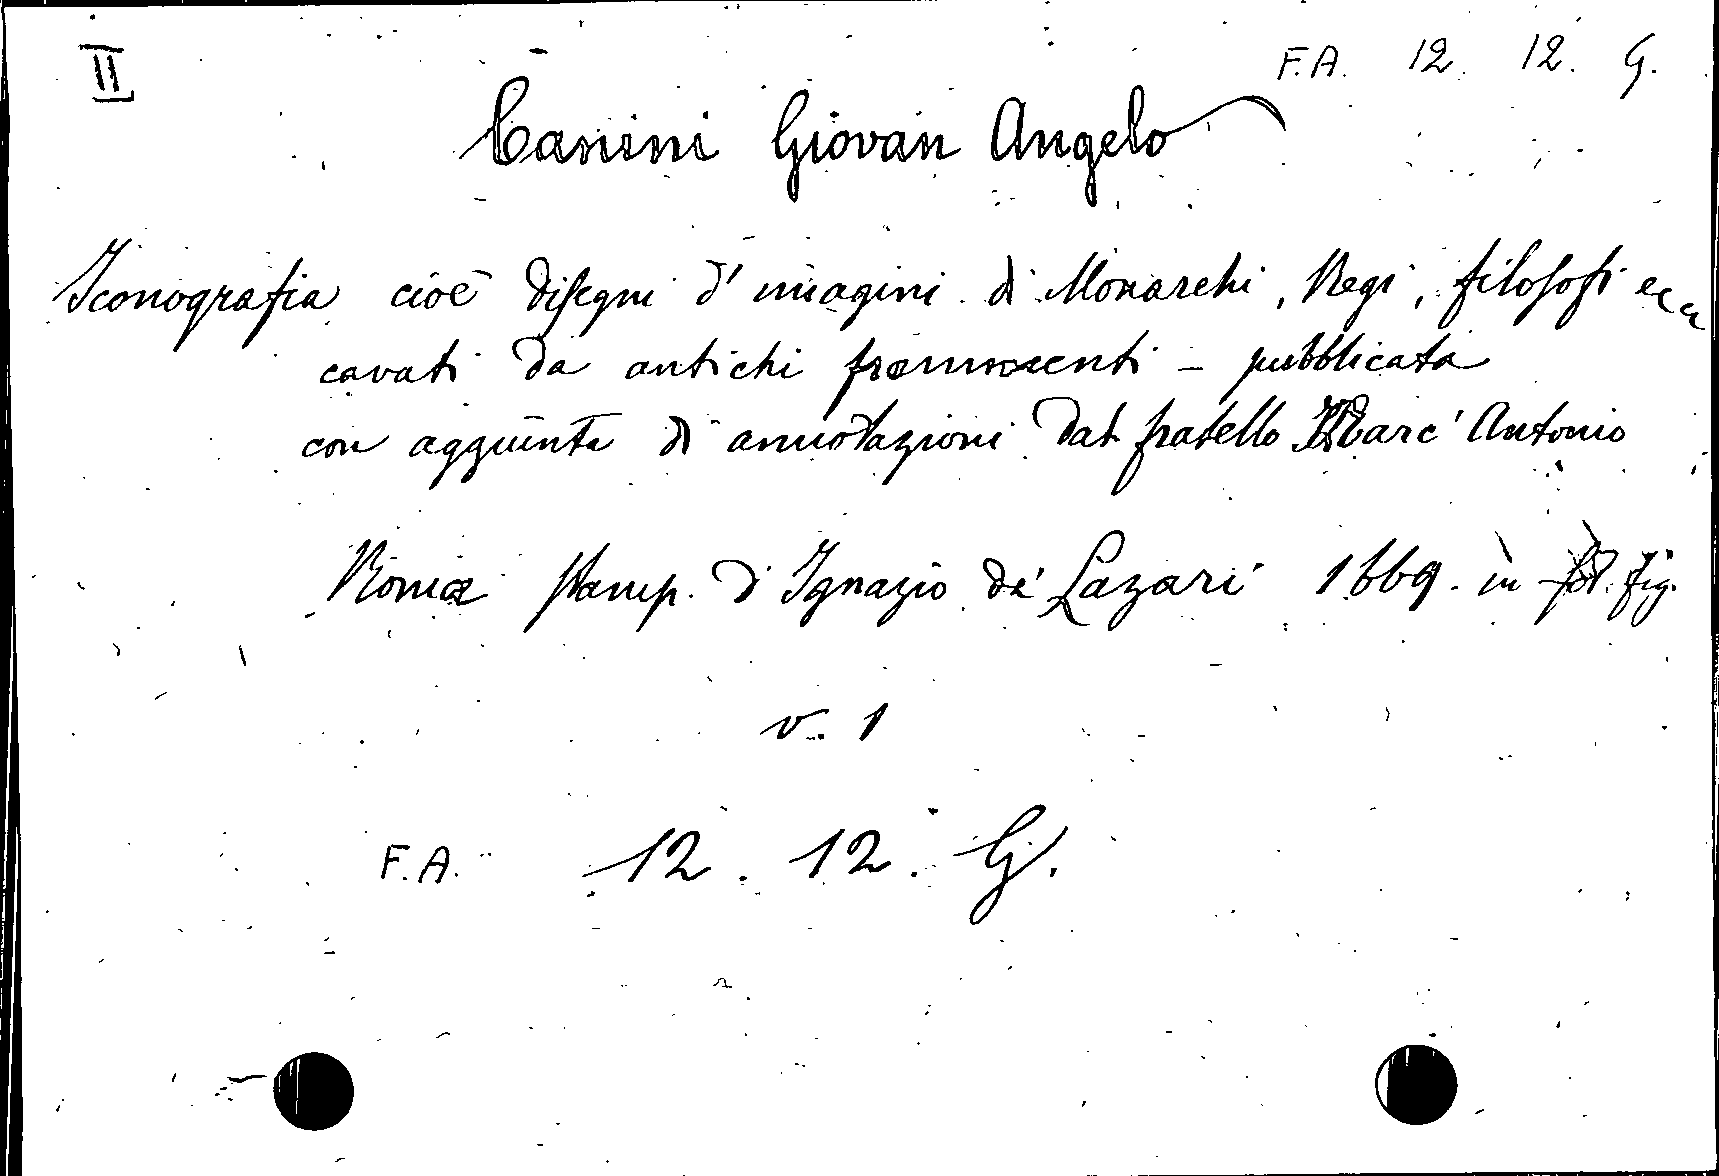 II
F.A. 12. 12. G.
Canini Giovan Angelo
Iconografia cioè disegni d'imagini di Monarchi, Regi, filosofi ecc
cavati da antichi frammenti - pubblicata
con aggiunta di annotazioni dal fratello Marc'Antonio
Roma Stamp. d'Ignazio de' Lazari 1669. in fol. fig.
v. 1
F.A. 12. 12. G.